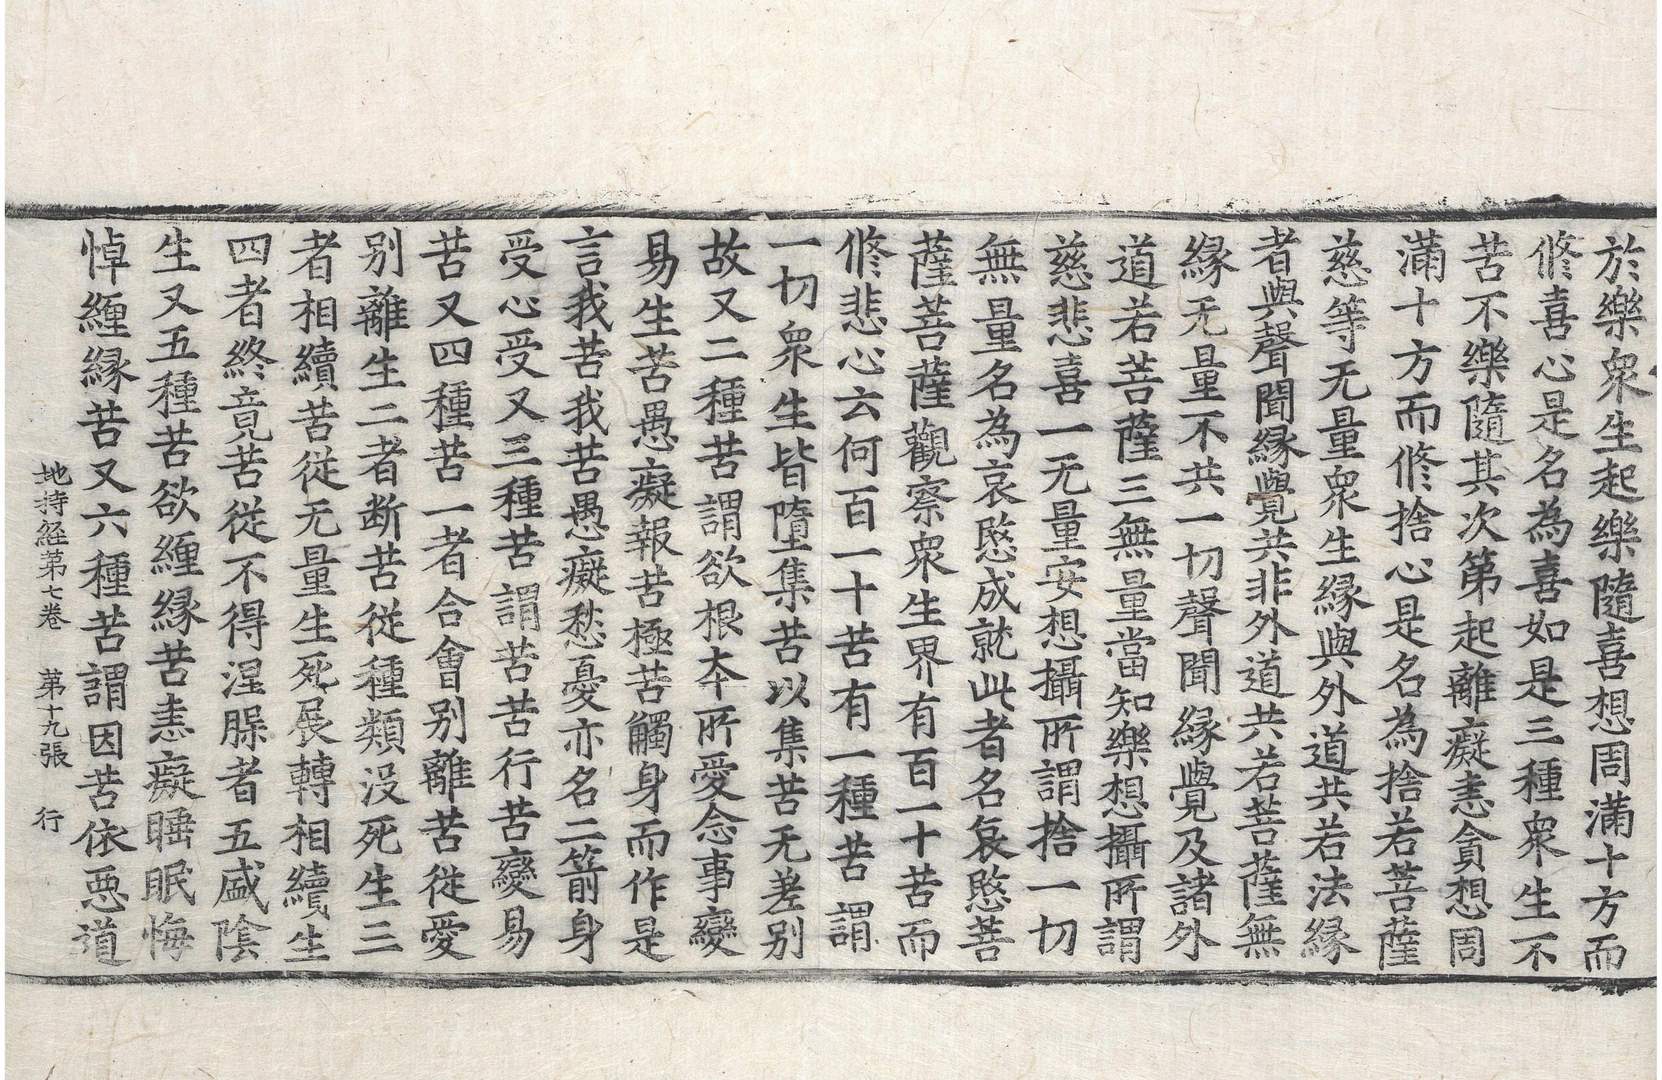 於樂衆生起樂隨喜想周滿十方而
俢喜心是名為喜如是三種衆生不
苦不樂隨其次第起離癡恚貪想周
滿十方而俢捨心是名為捨若菩薩
慈等无量衆生縁與外道共若法縁
者與聲聞縁覺共非外道共若菩薩無
縁无量不共一切聲聞縁覺及諸外
道若菩薩三無量當知樂想攝所謂
慈悲喜一无量安想攝所謂捨一切
無量名為哀愍成就此者名哀愍菩
薩菩薩觀察衆生界有百一十苦而
俢悲心云何百一十苦有一種苦謂
一切衆生皆墮集苦以集苦无差別
故又二種苦謂欲根本所愛念事變
易生苦愚癡報苦極苦觸身而作是
言我苦我苦愚癡愁憂亦名二箭身
受心受又三種苦謂苦苦行苦變易
苦又四種苦一者合會別離苦從愛
別離生二者断苦從種類没死生三
者相續苦從无量生死展轉相續生
四者終竟苦從不得涅䐉者五盛陰
生又五種苦欲纏縁苦恚癡睡眠悔
悼纏縁苦又六種苦謂因苦依惡道
地持経苐七卷 苐十九張 行